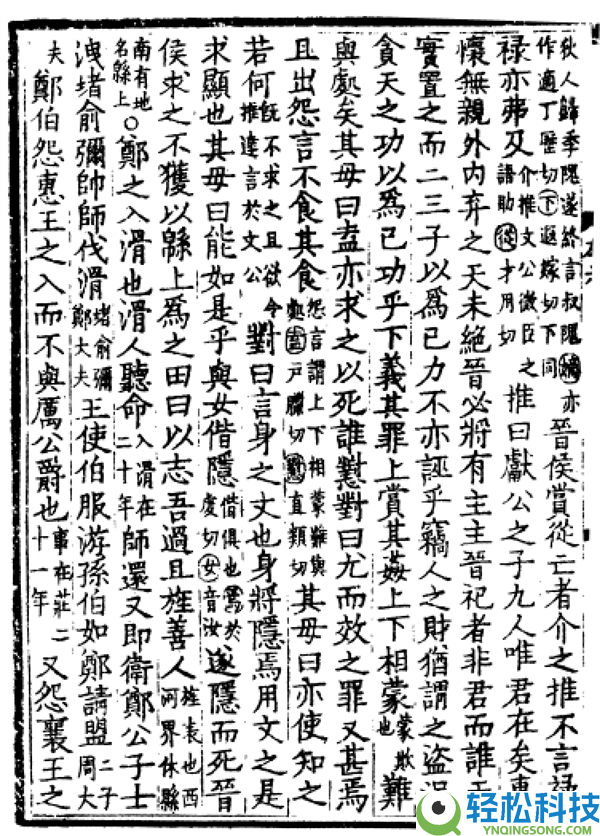 狄人歸季隗遂終言叔隗嫡亦作適丁歷切下遐嫁切下同晉侯賞從亡者介之推不言祿
祿亦弗及介推文公微臣之語助從才用切推曰獻公之子九人唯君在矣惠
懷無親外內弃之天未絕晉必將有主主晉祀者非君而誰天
實置之而二三子以爲己力不亦誣乎竊人之財猶謂之盜
貪天之功以爲己功乎下義其罪上賞其姦上下相蒙蒙欺也難
與處矣其母曰盍亦求之以死誰懟對曰尤而效之罪又甚焉
且出怨言不食其食怨言謂上下相蒙難與處盍戶臘切懟直類切其母曰亦使知之
若何既不求之且欲令推達言於文公對曰言身之文也身將隱焉用文之是
求顯也其母曰能如是乎與女偕隱偕俱也焉於虔切女音汝遂隱而死晉
侯求之不獲以緜上爲之田曰以志吾過且旌善人旌表也西河界休縣
南有地名緜上○鄭之入滑也滑人聽命入滑在二十年師還又即衛鄭公子士
洩堵俞彌帥師伐滑堵俞彌鄭大夫王使伯服游孫伯如鄭請盟二子周大
夫鄭伯怨惠王之入而不與厲公爵也事在莊二十一年又怨襄王之
轻松科技
YNQINGSONG.COM